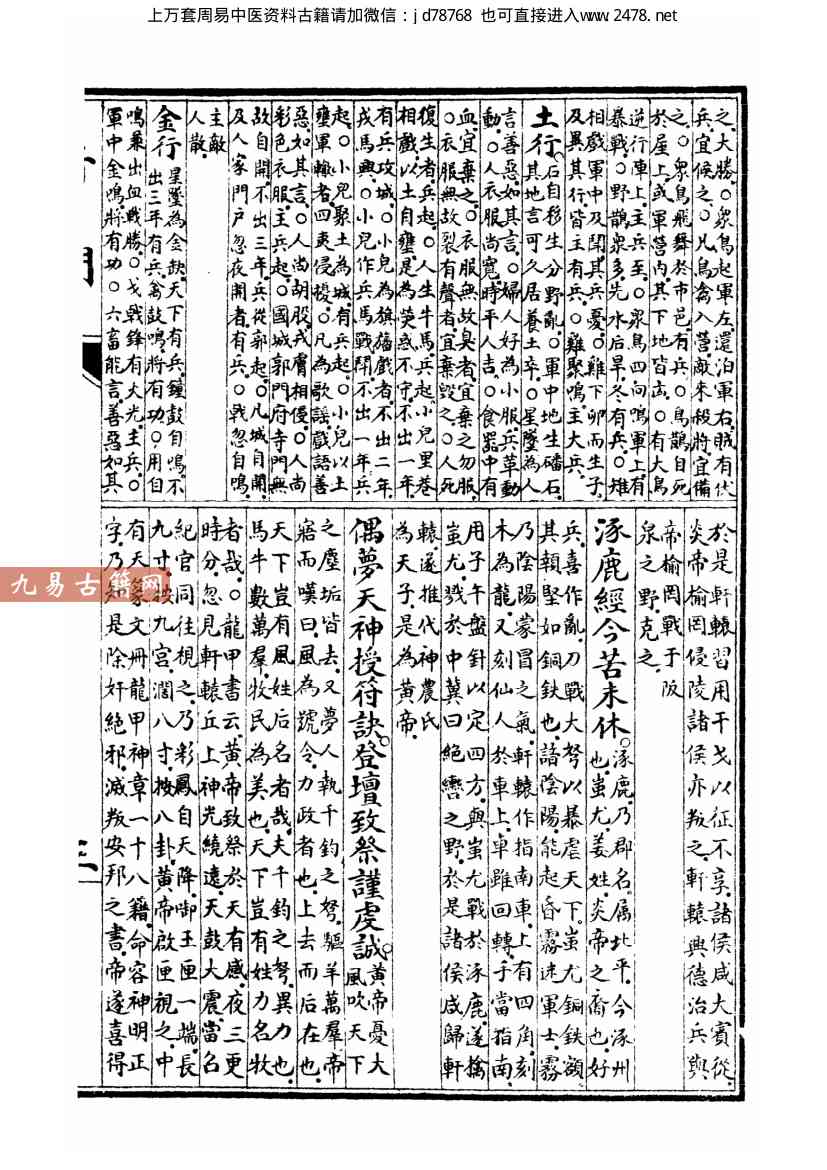 上万套周易中医资料古籍请加微信：jd78768 也可直接进入www.2478.net
之大勝○衆鳥起軍左還泊軍右賊有伏
兵宜候之○凡鳥禽入營敵來殺將宜備
之○衆鳥飛舞於市邑有兵○鳥鵲自死
於屋上或軍營内其下地皆凶○有大鳥
逆行陣上主兵至○衆鳥四向鳴軍上有
暴戰○野鵲衆多先水后旱冬有兵○雉
相戲軍中及聞其兵憂○雞下卵而生子
及異其行皆主有兵○雞聚鳴主大兵
土行 石自移生分野亂○軍中地生磻石
其地言可久居養土卒○星墜為人
言善惡如其言○婦人好為小服兵革動
動○人衣服尚寬時平人吉○食器中有
血宜棄之○衣服無故臭者宜棄之勿服
○衣服無故裂有聲者宜棄毀之○人死
復生者兵起○人生牛馬兵起小兒里巷
相戲以土自壅是為熒惑不守不出一年
有兵攻城○小兒為旗旛戲者不出二年
戎馬興○小兒作兵馬戰鬪不出一年兵
起○小兒聚土為城有兵起○小兒以土
壅軍轍者四夷侵擾○凡為歌謠戲語善
惡如其言○人尚胡服戎膚相侵○人尚
彩色衣服主兵起○國城郭門府寺門無
故自開不出三年兵從郭起○凡城自鬪
及人家門户忽夜鬧者有兵○戰忽自鳴
主敵
人散
金行 星墜為金鈌天下有兵鐘鼓自鳴不
出三年有兵禽鼓鳴將有功○用自
鳴兼出血戰勝○戈戰鋒有大光主兵○
軍中金鳴將有功○六畜能言善惡如其
於是軒轅習用干戈以征不享諸侯咸大賓從
炎帝榆罔侵陵諸侯亦叛之軒轅興德治兵與
帝榆罔戰于阪
泉之野克之
涿鹿經今苦未休 涿鹿乃郡名属北平今涿州
也蚩尤姜姓炎帝之裔也好
兵喜作亂刀戰大弩以暴虐天下蚩尤銅鉄額
其額堅如銅鉄也諳陰陽能起昏霧迷軍士霧
乃陰陽蒙冒之氣軒轅作指南車上有四角刻
木為龍又刻仙人於車上車雖回轉手當指南
用子午盤針以定四方與蚩尤戰於涿鹿遂擒
蚩尤戮於中冀曰絕轡之野於是諸侯咸歸軒
轅遂推代神農氏
為天子是為黄帝
偶夢天神授符訣登壇致祭謹虔誠 黄帝憂大
風吹天下
之塵垢皆去又夢人執千鈞之弩驅羊萬羣帝
寤而嘆曰風為號令力政者也上去而后在也
天下豈有風姓后名者哉夫千鈞之弩異力也
馬牛數萬羣牧民為美也天下豈有姓力名牧
者哉○龍甲書云黄帝致祭於天有感夜三更
時分忽見軒轅丘上神光繞遶天鼓大震當召
紀官同往視之乃彩鳳自天降御玉匣一端長
九寸按九宫濶八寸按八卦黄帝啟匣視之中
有天篆文冊龍甲神章一十八籍命容神明正
字乃知是除奸絕邪滅叛安邦之書帝遂喜得
三
九易古籍网